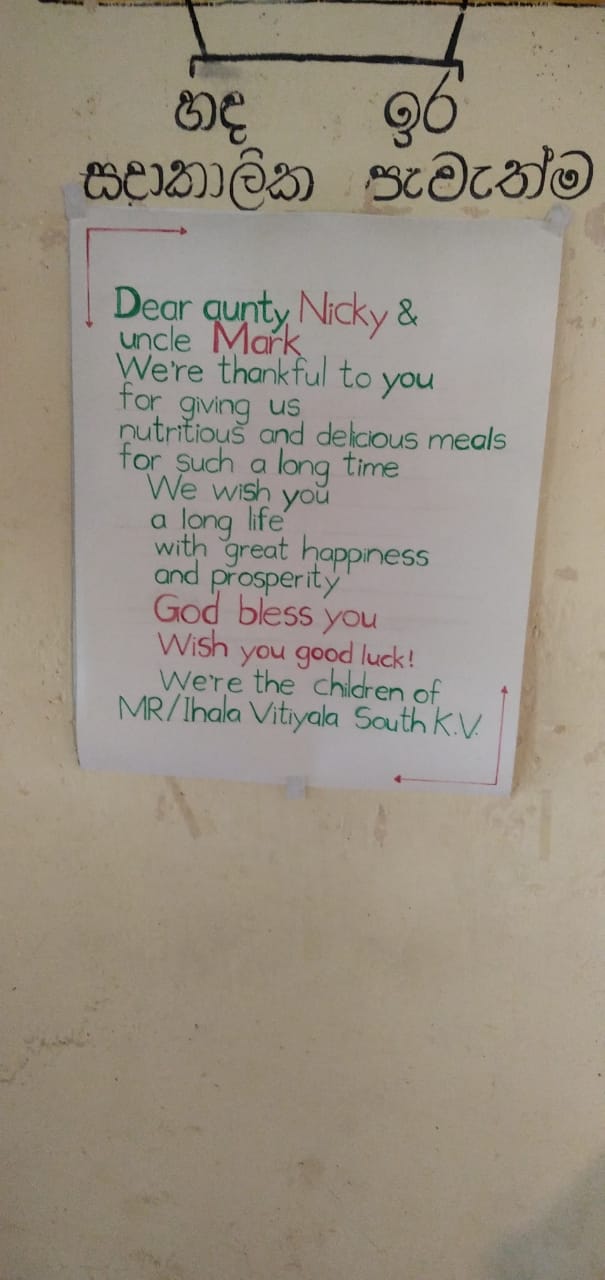 හඳ ඉර
සදාකාලික පැවැත්ම
Dear aunty Nicky &
uncle Mark
We're thankful to you
for giving us
nutritious and delicious meals
for such a long time
We wish you
a long life
with great happiness
and prosperity
God bless you
Wish you good luck!
We're the children of
MR/Ihala Vitiyala South K.V.